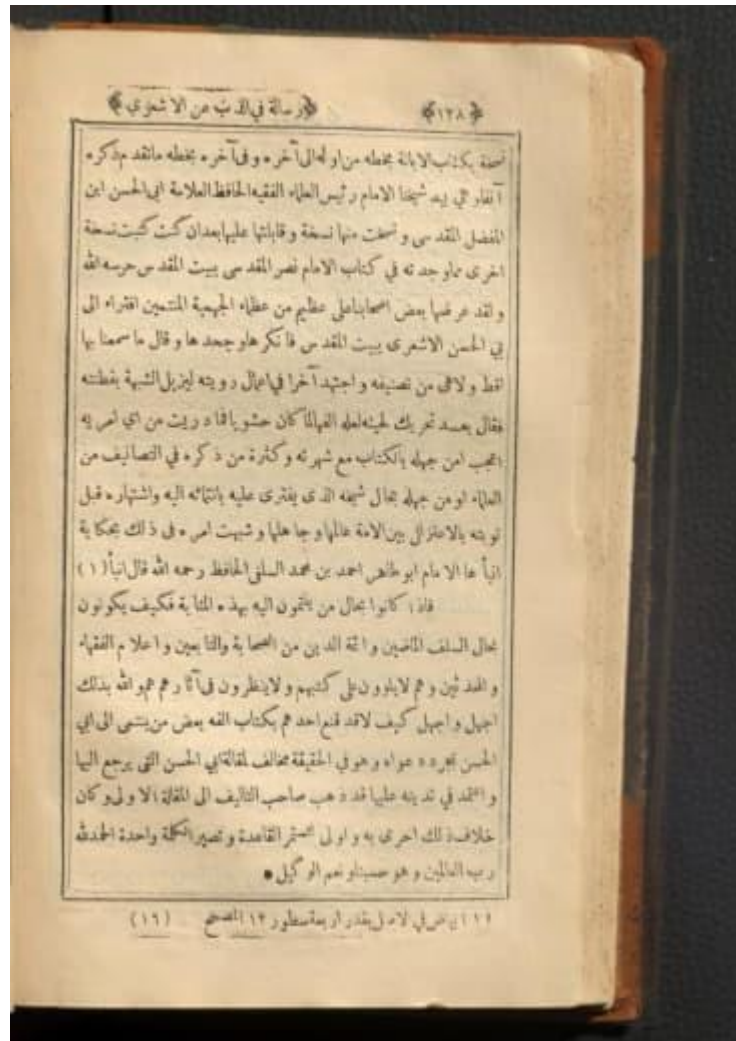 ﴿١٢٨﴾ ﴿رسالة في الذب عن الاشعري﴾
نسخة بكتاب الابانة بخطه من اوله الى آخره وفى آخره بخطه ماتقدم ذكره
آنفا وهي بيد شيخنا الامام رئيس العلماء الفقيه الحافظ العلامة ابي الحسن ابن
المفضل المقدسى و نسخت منها نسخة وقابلتها عليها بعدان كنت كتبت نسخة
اخرى مماوجدته في كتاب الامام نصر المقدسى ببيت المقدس حرسه الله
ولقد عرضها بعض اصحابنا على عظيم من عظماء الجهمية المنتمين افتراء الى
بي الحسن الاشعرى ببيت المقدس فانكرها وجحدها وقال ما سمعنا بها
اقط ولاهى من تصنيفه واجتهد آخرا في اعمال رويته ليزيل الشبهة بفطنته
فقال بعد تحريك لحيته لعله الفها لما كان حشويا فما دريت من اي امريه
اعجب امن جهله بالكتاب مع شهرته وكثرة من ذكره في التصانيف من
العلماء او من جهله بحال شيخه الذى يفترى عليه بانتمائه اليه واشتهاره قبل
توبته بالاعتزال بين الامة عالمها وجاهلها وشبهت امره فى ذلك بحكاية
انبأ ها الامام ابو طاهر احمد بن محمد السلفي الحافظ رحمه الله قال انبأ (١)
فاذا كانوا بحال من ينتمون اليه بهذه المثابة فكيف يكونون
بحال السلف الماضين وائمة الدين من الصحابة والتابعين واعلام الفقهاء
و المحدثين وهم لايلوون على كتبهم ولاينظرون فى آثارهم هم والله بذلك
اجهل واجهل كيف لاقد قنع احدهم بكتاب الفه بعض من ينتمى الى ابي
الحسن بمجرد دعواه وهو في الحقيقة مخالف لمقالة ابي الحسن التى يرجع اليها
واعتمد في تدينه عليها قد ذهب صاحب التاليف الى المقالة الاولى وكان
خلاف ذلك احرى به واولى لتستمر القاعدة وتصير الكلمة واحدة الحمدلله
رب العالمين وهو حسبنا و نعم الوكيل •
(١) بياض في الاصل بقدر اربعة سطور ١٢ المصحح (١٦)